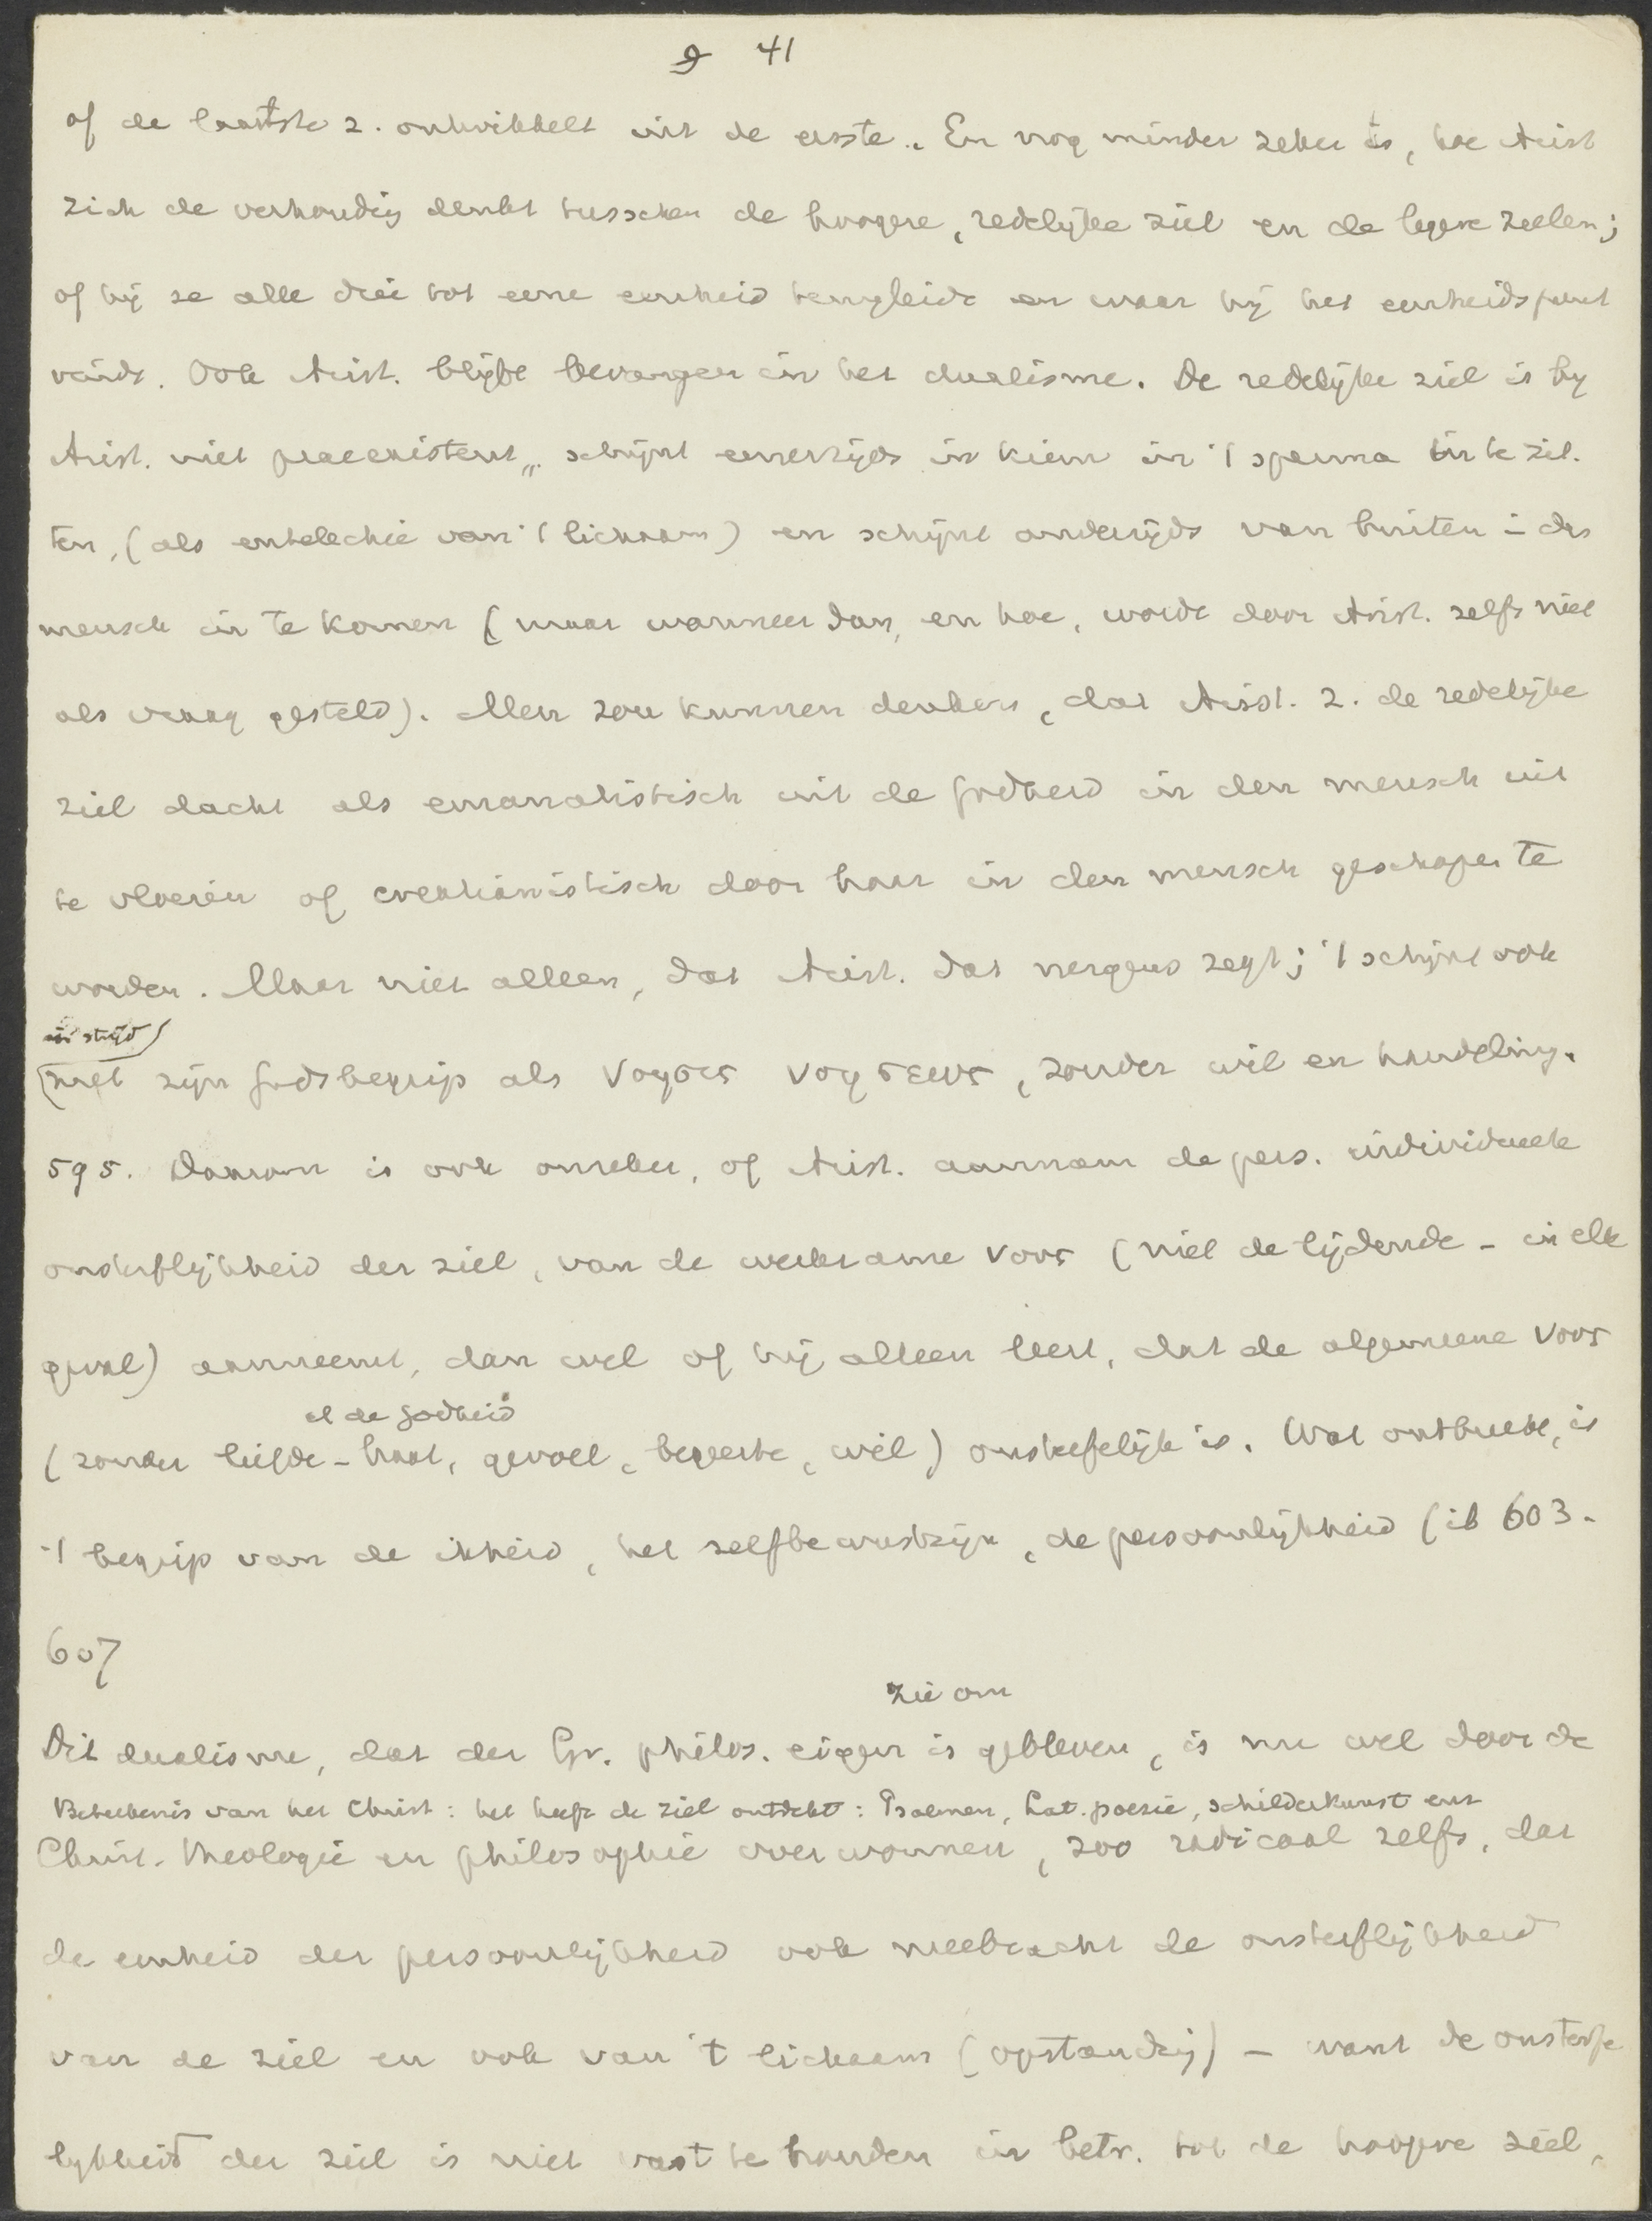 41
of de laatste z. ontwikkelt uit de eerste. En nog minder zeker is, hoe Arist
zich de verhoudig denkt tusschen de hoogere, redelijke ziel en de lagere zielen;
of hij ze alle drie tot eene eenheid terugleidt en waar hij het eenheidspunt
vindt. Ook Arist. blijft bevangen in het dualisme. De redelijke ziel is by
Arist. niet praeexistent, schijnt eenerzijds in kiem in 't sperma in te zit-
ten, (als entelechie van 't lichaam) en schijnt anderzijds van buiten in den
mensch in te komen (maar wanneer dan, en hoe, wordt door Arist. zelfs niet
als vraag gesteld). Men zou kunnen denken, dat Arist. z. de redelijke
ziel dacht als emanatistisch uit de godheid in den mensch uit
te vloeien of creatianistisch door haar in den mensch geschapen te
worden. Maar niet alleen, dat Arist. dat nergens zegt; 't schijnt ook
in strijd
met zijn Godsbegrip als νοησις νοησεως, zonder wil en handeling.
595. Daarom is ook onzeker, of Arist. aannam de pers. individueele
onsterflijkheid der ziel, van de werkzame νους (niet de lijdende - in elk
geval) aanneemt, dan wel of hij alleen leert, dat de algemeene νους
al de godheid
(zonder liefde - haat, gevoel, begeerte, wil) onsterfelijk is. Wat ontbreekt, is
't begrip van de ikheid, het zelfbewustzijn, de persoonlijkheid (ib 603.
607
zie om
Dit dualisme, dat der Gr. philos. eigen is gebleven, is nu wel door de
Beteekenis van het Christ: het heeft de ziel ontdekt: Psalmen, Lat. poesie, schilderkunst enz
Christ. theologie en philosophie overwonnen, zoo radicaal zelfs, dat
de eenheid der persoonlijkheid ook meebracht de onsterflijkheid
van de ziel en ook van 't lichaam (opstandig) - want de onsterfe
lykheid der ziel is niet vast te houden in betr. tot de hoogere ziel,